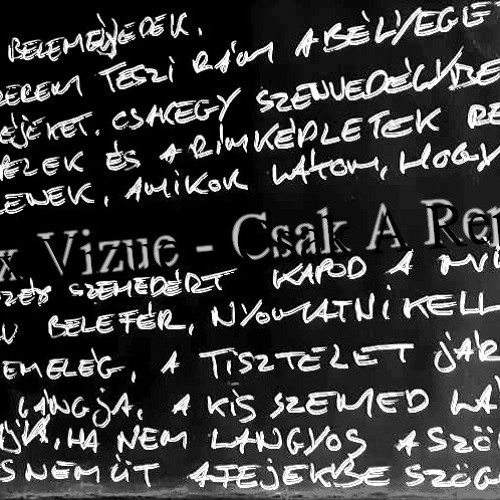 BELEMEGYEDEK.
TESZI RÁM A BÉLYEGET
CSAKEGY SZENVEDÉLYBE
ÉS A RÍMKÉPLETEK RE
LENEK, AMIKOR LÁTOM, HOGY
x Vizue - Csak A Rep
SZEMEDÉRT KAPOD A
BELEFÉR, NYOMATNI KELL
EMELEG, A TISZTELET JÁR
LÁNGJA, A KIS SZEMED LA
HA NEM LANGYOS A SZÖ
S NEM ÜT A FEJEKBE SZÖG